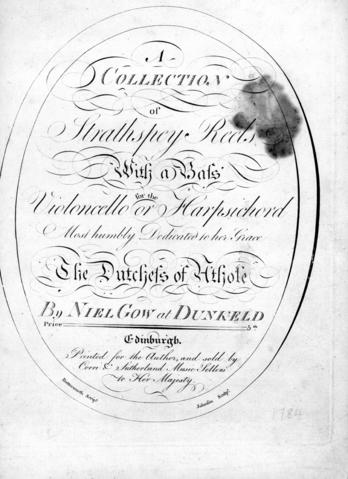 A
COLLECTION
of
Strathspey Reels
With a Bass
for the
Violoncello or Harpsichord
Most humbly Dedicated to her Grace
The Dutchess of Athole
By NIEL GOW at DUNKELD
Price
Edinburgh.
Printed for the Author, and sold by
Corri & Sutherland Music Sellers
to Her Majesty
1784